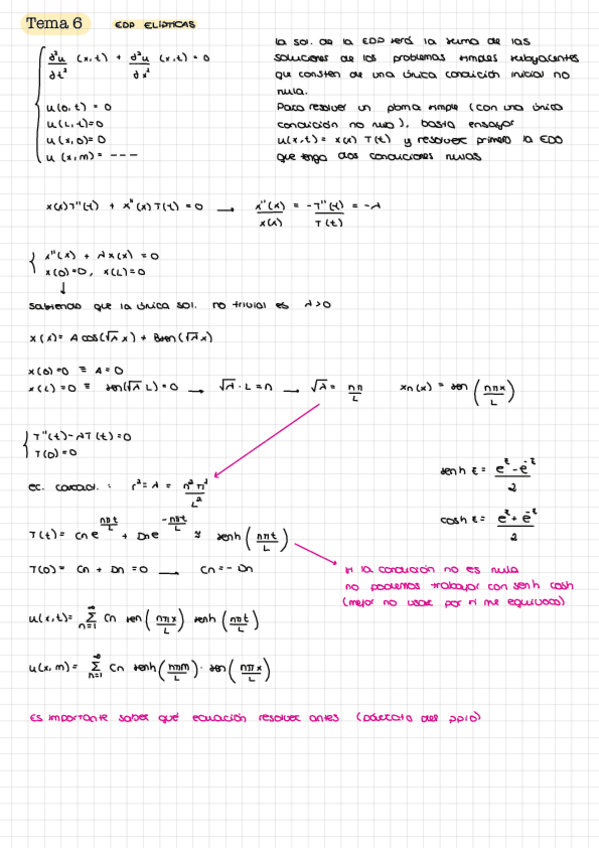 Tema 6 EDP ELÍPTICAS
∂²u/∂t² (x,t) + ∂²u/∂x² (x,t) = 0
u(0,t) = 0
u(L,t)=0
u(x,0)=0
u(x,m)= ---
la sol. de la EDP será la suma de las
soluciones de los problemas simples subyacentes
que consten de una única condición inicial no
nula.
Para resolver un pbma simple (con una única
condición no nula), basta ensayar
u(x,t) = x(x) T(t) y resolver primero la EDO
que tenga dos condiciones nulas
x(x)T''(t) + x''(x)T(t) = 0 → x''(x)/x(x) = -T''(t)/T(t) = -λ
x''(x) + λx(x) = 0
x(0)=0, x(L)=0
↓
Sabiendo que la única sol. no trivial es λ>0
x(x)= A cos(√λ x) + Bsen(√λ x)
x(0)=0 ≡ A=0
x(L)=0 ≡ sen(√λ L)=0 → √λ · L = n → √λ = nπ/L xn(x) = sen (nπx/L)
T''(t)-λT(t)=0
T(0)=0
ec. caract. : r²= λ = n²π²/L²
senh t = (e^t - e^-t)/2
cosh t = (e^t + e^-t)/2
T(t) = Cn e^(nπt/L) + Dn e^(-nπt/L) y senh (nπt/L)
T(0)= Cn + Dn = 0 → Cn = - Dn
si la condición no es nula
no podemos trabajar con senh cosh
(mejor no usar por si me equivoco)
u(x,t)= ∞Σn=1 Cn sen (nπx/L) senh (nπt/L)
u(x,m) = ∞Σn=1 Cn senh (nπm/L) · sen (nπx/L)
Es importante saber qué ecuación resolver antes (párrafo del ppio)